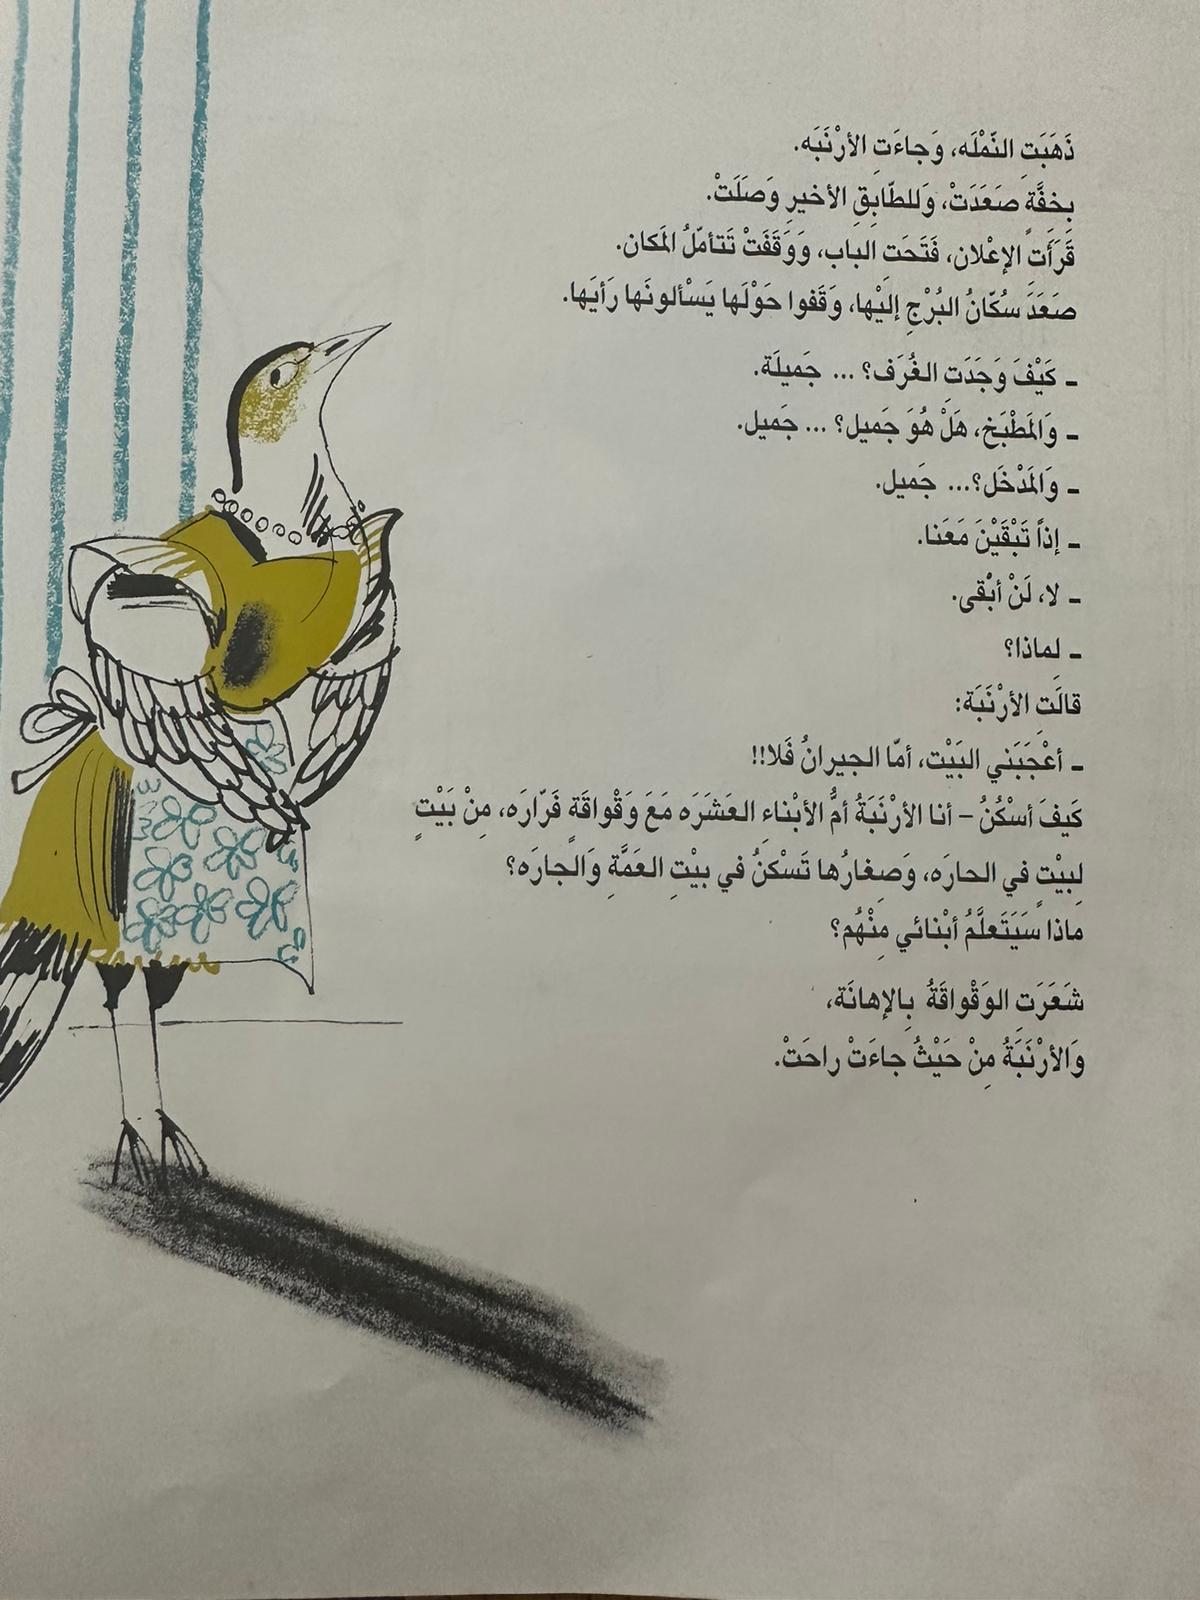 ذَهَبَتِ النّمْلَه، وَجاءَتِ الأرْنَبَه.
بِخفَّةٍ صَعَدَتْ، وَللطّابِقِ الأخيرِ وَصَلَتْ.
قَرَأَت الإعْلان، فَتَحَت الباب، وَوَقَفَتْ تَتأمّلُ المَكان.
صَعَدَ سُكّانُ البُرْجِ إلَيْها، وَقَفوا حَوْلَها يَسْألونَها رَأيَها.
ـ كَيْفَ وَجَدَتِ الغُرَف؟ ... جَميلَة.
ـ وَالمَطْبَخ، هَلْ هُوَ جَميل؟ ... جَميل.
ـ وَالمَدْخَل؟... جَميل.
ـ إذاً تَبْقَيْنَ مَعَنا.
ـ لا، لَنْ أبْقى.
ـ لِماذا؟
قالَتِ الأرْنَبَة:
ـ أعْجَبَني البَيْت، أمّا الجيرانُ فَلا!!
كَيفَ أسْكُنُ – أنا الأرْنَبَةُ أمُّ الأبْناءِ العَشَرَه مَعَ وَقْواقَةٍ فَرّارَه، مِنْ بَيْتٍ
لِبيْتٍ في الحارَه، وَصِغارُها تَسْكنُ في بيْتِ العَمَّةِ وَالجارَه؟
ماذا سَيَتَعلَّمُ أبْنائي مِنْهُم؟
شَعَرَتِ الوَقْواقَةُ بِالإهانَة،
وَالأرْنَبَةُ مِنْ حَيْثُ جاءَتْ راحَتْ.